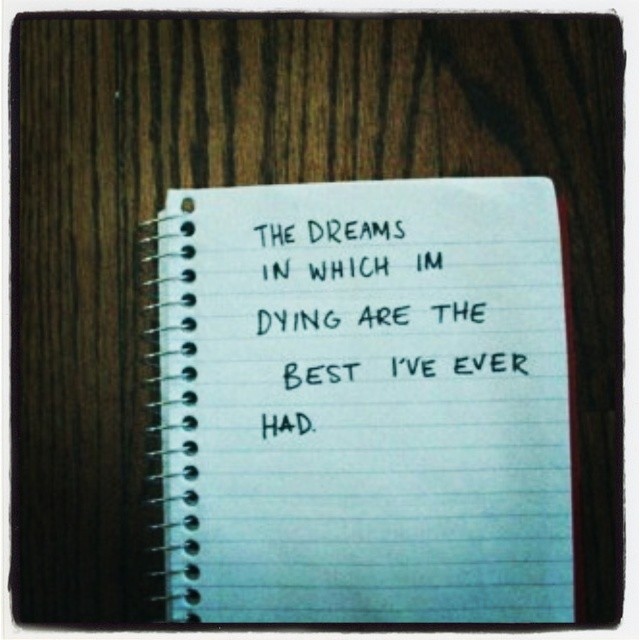 THE DREAMS
IN WHICH IM
DYING ARE THE
BEST I'VE EVER
HAD.